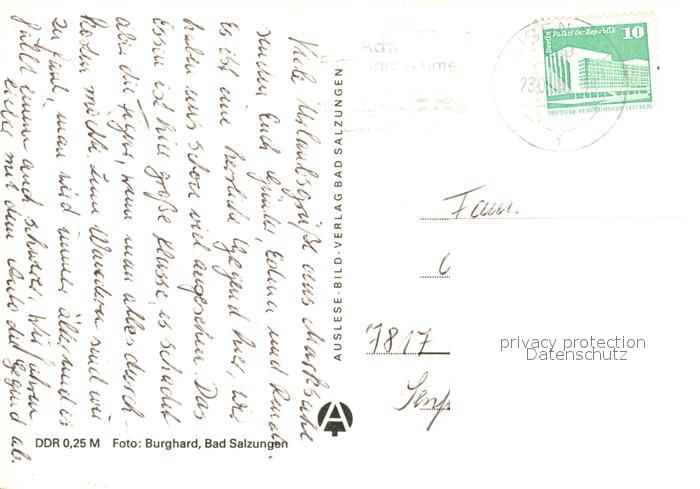 Viele Urlaubsgrüße aus Marksuhl
senden Euch Günter, Edama und Renate.
Es ist eine herrliche Gegend hier, wir
haben uns schon viel angesehen. Das
Essen ist hier große Klasse, es schadet
aber der Figur, wenn man alles durch-
kosten möchte. Zum Wandern sind wir
zu faul, man wird immer älter und es
fällt einem auch schwerer. Wir fahren
lieber mit dem Auto die Gegend ab.
DDR 0,25 M Foto: Burghard, Bad Salzungen
AUSLESE-BILD-VERLAG BAD SALZUNGEN
Berlin Palast der Republik
10
DEUTSCHE DEMOKRATISCHE REPUBLIK
Fam.
7817
Senf
privacy protection
Datenschutz